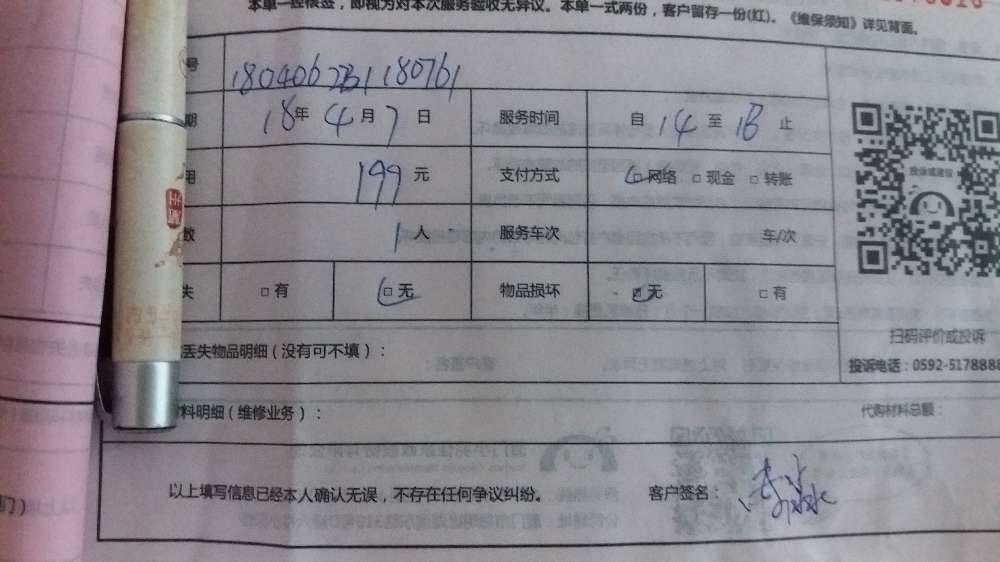 本单一经核签，即视为对本次服务验收无异议。本单一式两份，客户留存一份(红)。《维保须知》详见背面。
号
期 18年 4月 7日 服务时间 自 14 至 18 止
用 199元 支付方式 □网络 □现金 □转账
投诉或建议
数 1人 服务车次 车/次
失 □有 □无 物品损坏 □无 □有
丢失物品明细（没有可不填）：
扫码评价或投诉
投诉电话：0592-5178888
料明细（维修业务）：
代购材料总额：
以上填写信息已经本人确认无误，不存在任何争议纠纷。 客户签名：